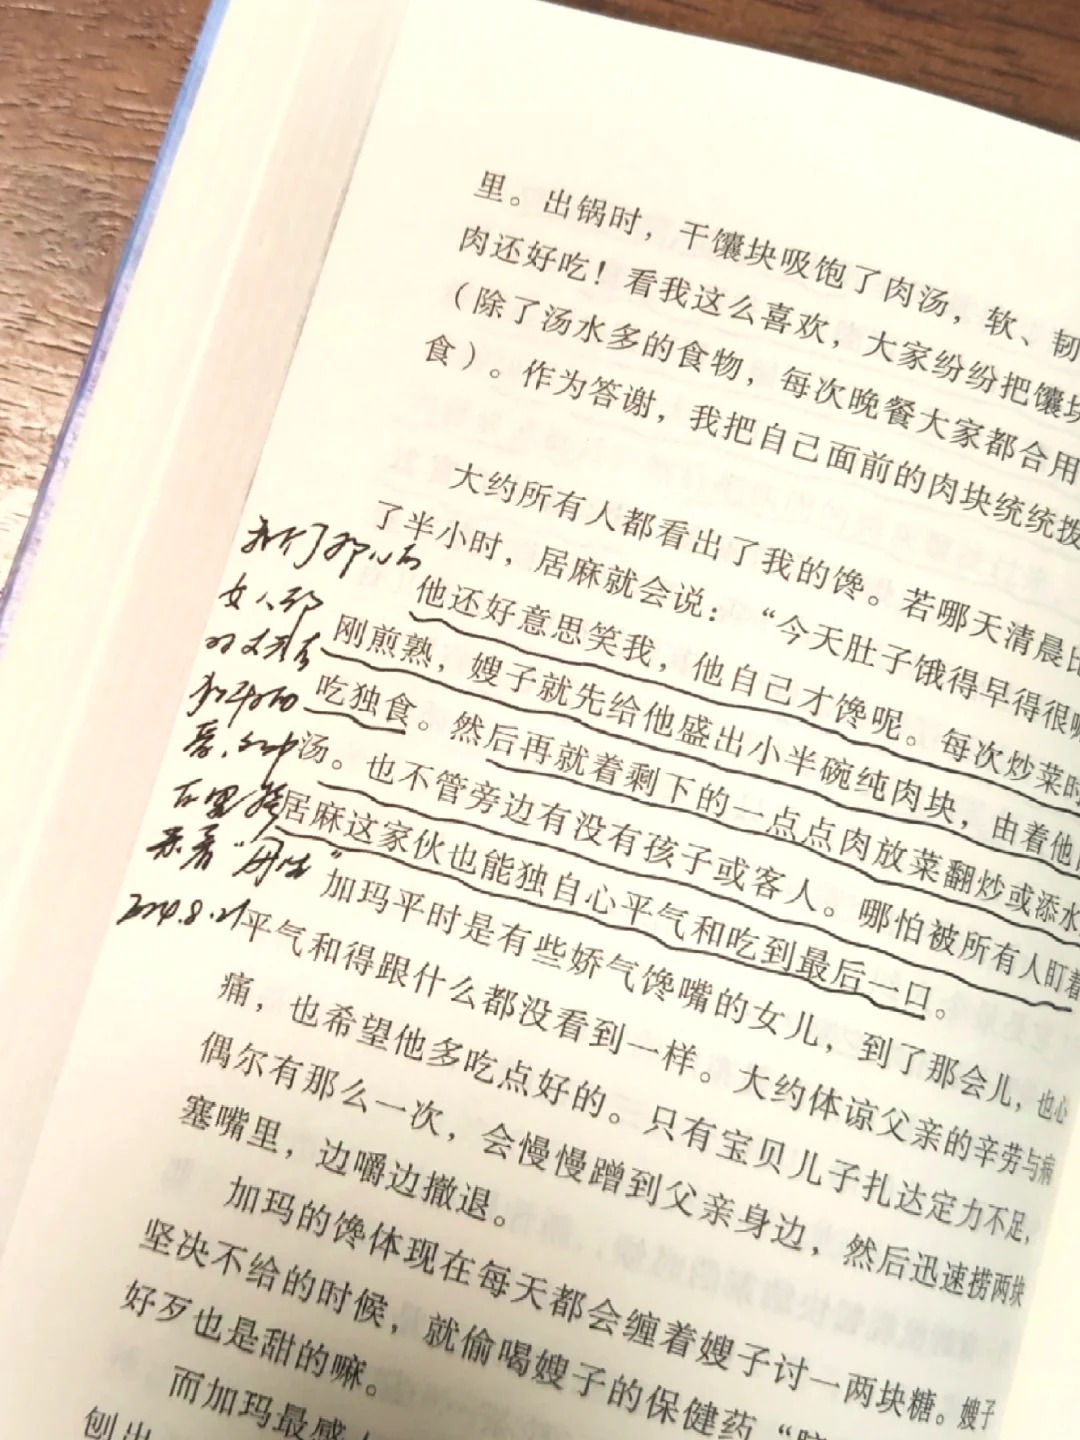 里。出锅时，干馕块吸饱了肉汤，软、韧
肉还好吃！看我这么喜欢，大家纷纷把馕块
（除了汤水多的食物，每次晚餐大家都合用
食）。作为答谢，我把自己面前的肉块统统拨
大约所有人都看出了我的馋。若哪天清晨
了半小时，居麻就会说：“今天肚子饿得早得很嘛
他还好意思笑我，他自己才馋呢。每次炒菜时
刚煎熟，嫂子就先给他盛出小半碗纯肉块，由着他
吃独食。然后再就着剩下的一点点肉放菜翻炒或添水
汤。也不管旁边有没有孩子或客人。哪怕被所有人盯着
居麻这家伙也能独自心平气和吃到最后一口。
加玛平时是有些娇气馋嘴的女儿，到了那会儿，也心
平气和得跟什么都没看到一样。大约体谅父亲的辛劳与病
痛，也希望他多吃点好的。只有宝贝儿子扎达定力不足，
偶尔有那么一次，会慢慢蹭到父亲身边，然后迅速捞两块
塞嘴里，边嚼边撤退。
加玛的馋体现在每天都会缠着嫂子讨一两块糖。嫂子
坚决不给的时候，就偷喝嫂子的保健药“
好歹也是甜的嘛。
而加玛最感
刨出
我们那儿的
女人
2024.8.21